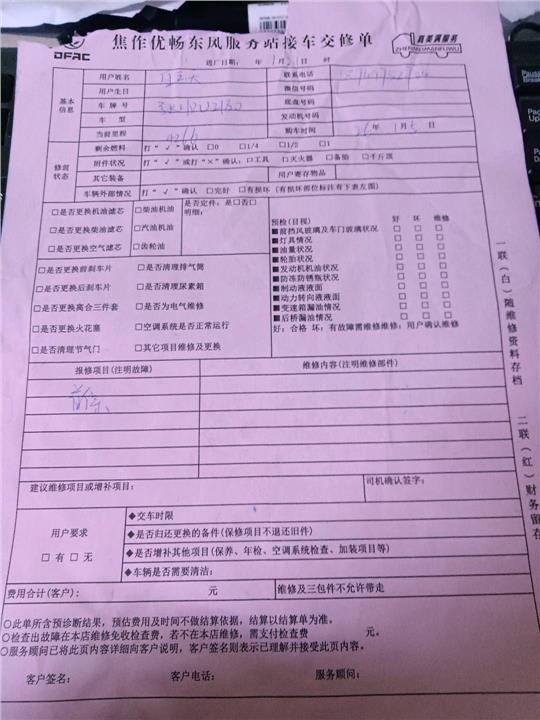 焦作优畅东风服务站接车交修单
DFAC
真美满服务
ZHENMEIMANFUWU
进厂日期： 年 1月 日 时
基本信息
用户姓名
联系电话
用户生日
微信号码
车牌号
底盘号码
车型
发动机号码
当前里程 4266
购车时间 26年 1月5日
修前状态
剩余燃料 打“√”确认 □0 □1/4 □1/2 □1
附件状况 打“√”或打“×”确认：□工具 □灭火器 □备胎 □千斤顶
其它装备
用户寄存物品
车辆外部情况 打“√”确认 □完好 □有损坏（有损坏部位标注有下表左图）
□是否更换机油滤芯 □柴油机油 是否定件：是□否□
明细：
□是否更换柴油滤芯 □汽油机油
□是否更换空气滤芯 □齿轮油
□是否更换前刹车片 □是否清理排气筒
□是否更换后刹车片 □是否清理尿素箱
□是否更换离合三件套 □是否为电气维修
□是否更换火花塞 □空调系统是否正常运行
□是否清理节气门 □其它项目维修及更换
预检(目视) 好 坏 维修
■前挡风玻璃及车门玻璃状况 □ □ □
■灯具情况 □ □ □
■油量状况 □ □ □
■轮胎状况 □ □ □
■发动机机油状况 □ □ □
■防冻防锈瓶状况 □ □ □
■制动液液面 □ □ □
■动力转向液液面 □ □ □
■变速箱漏油情况 □ □ □
■后桥漏油情况 □ □ □
好：合格 坏：有故障需维修维修：用户确认维修
报修项目(注明故障)
维修内容(注明维修部件)
建议维修项目或增补项目：
司机确认签字：
用户要求
□ 有 □ 无
◆交车时限
◆是否归还更换的备件(保修项目不退还旧件)
◆是否增补其他项目(保养、年检、空调系统检查、加装项目等)
◆车辆是否需要清洁：
费用合计(客户)： 元
维修及三包件不允许带走
○此单所含预诊断结果，预估费用及时间不做结算依据，结算以结算单为准。
○检查出故障在本店维修免收检查费，若不在本店维修，需支付检查费 元。
○服务顾问已将此页内容详细向客户说明，客户签名则表示已理解并接受此页内容。
客户签名： 客户电话： 服务顾问：
一联（白）随维修资料存档
二联（红）财务留存